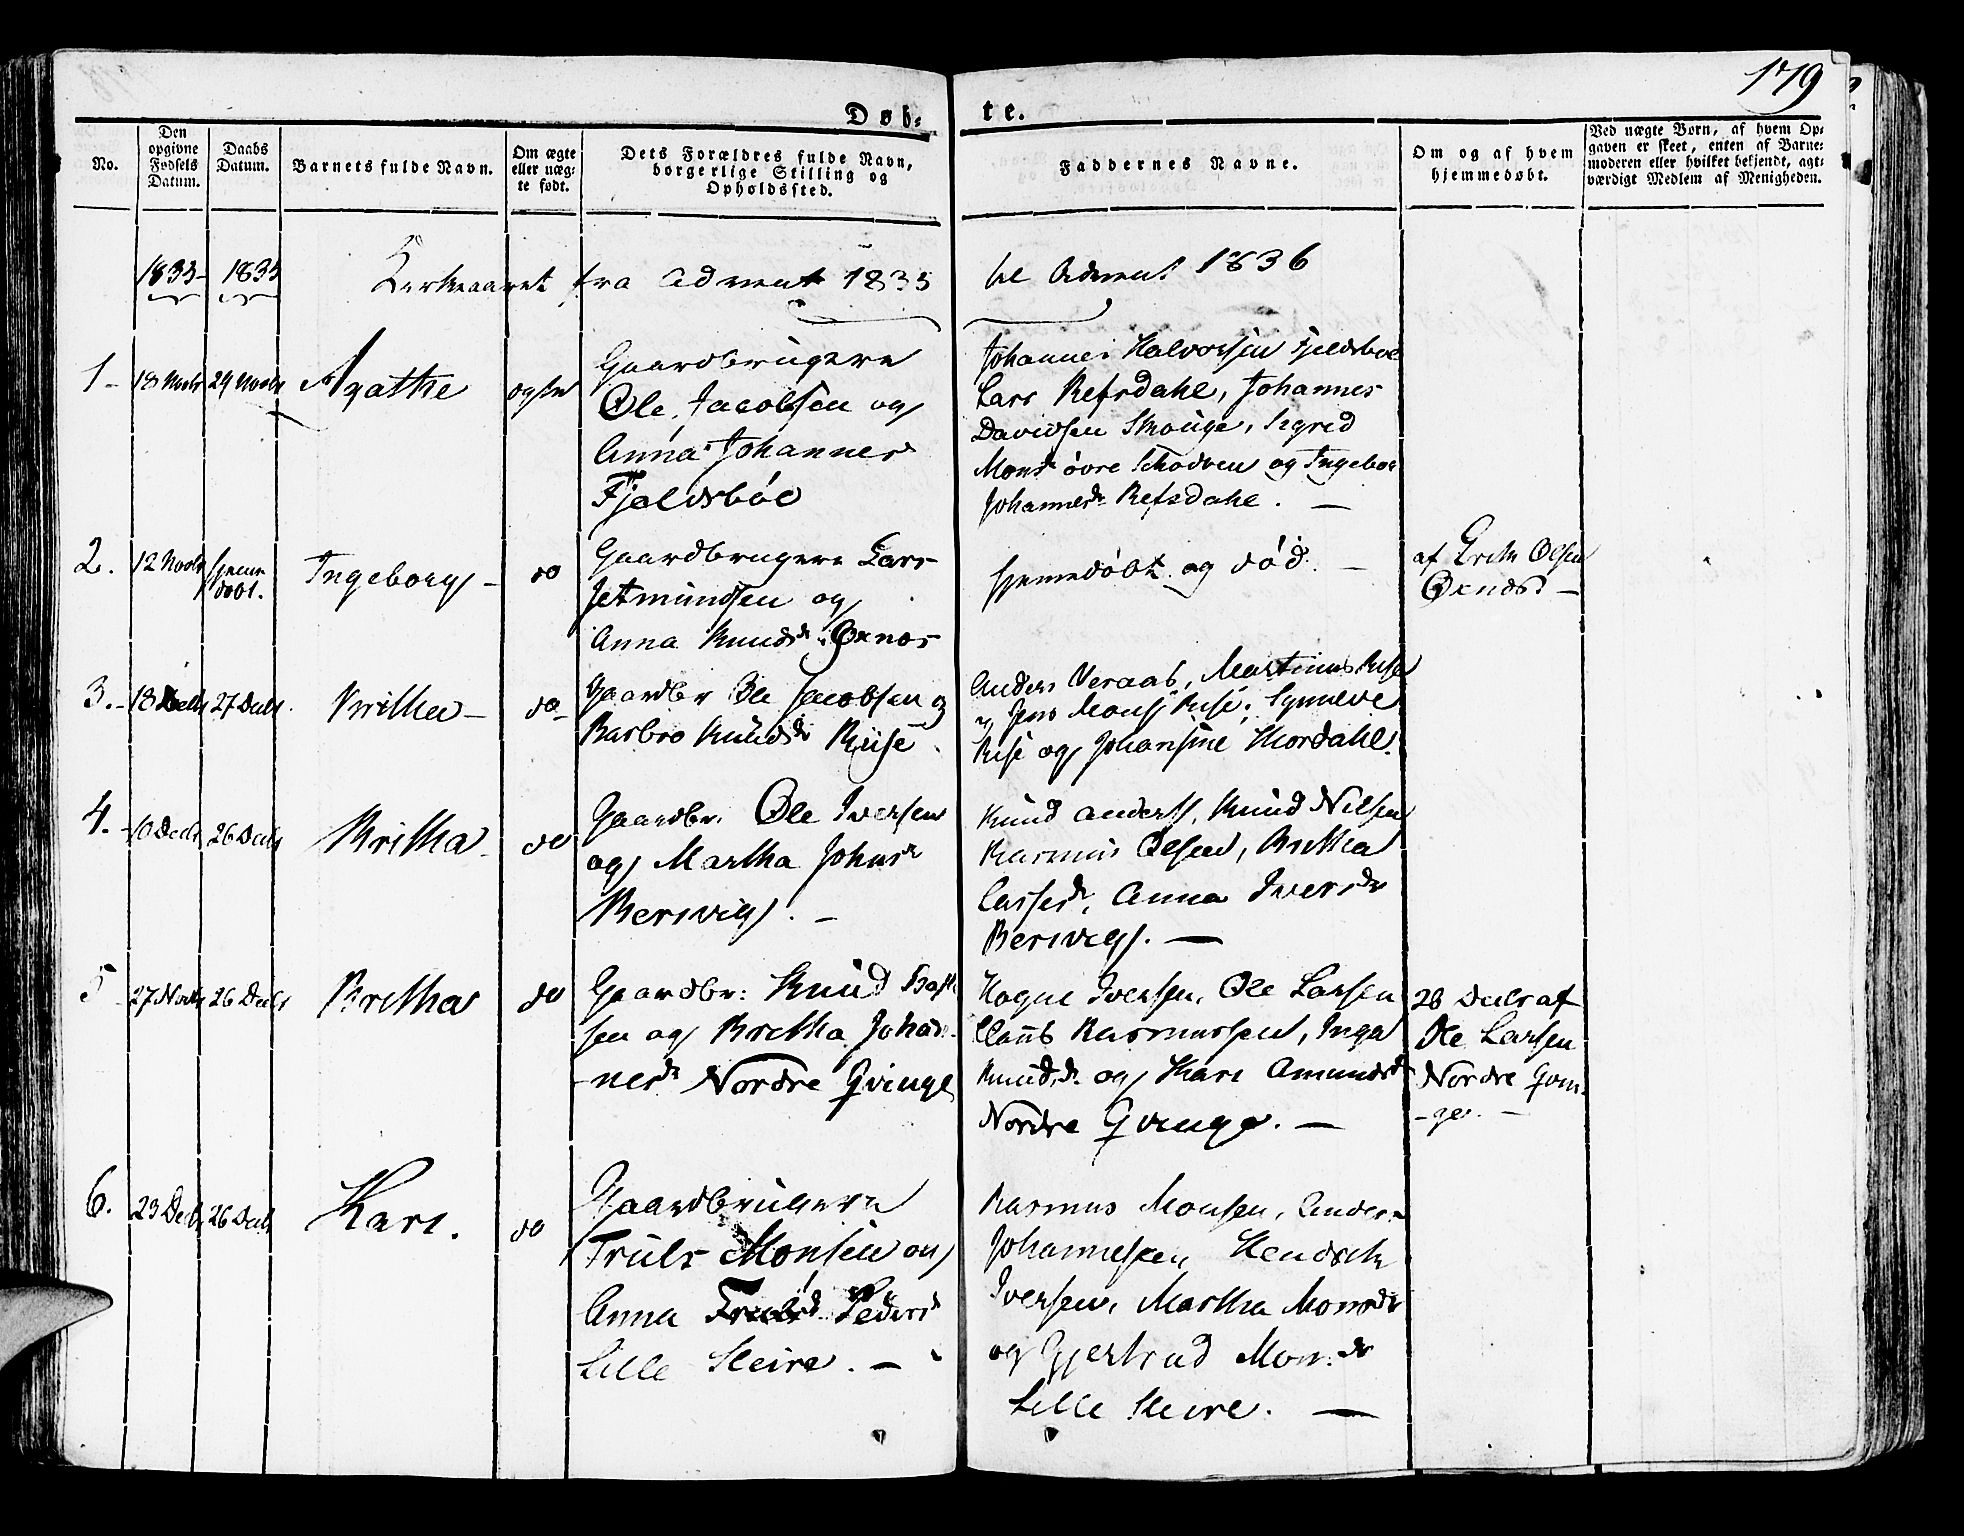 179
Døb-
te.
No.
Den opgivne Fødsels Datum.
Daabs Datum.
Barnets fulde Navn.
Om ægte eller uæg-te født.
Dets Forældres fulde Navn, borgerlige Stilling og Opholdssted.
Faddernes Navne.
Om og af hvem hjemmedøbt.
Ved uægte Børn, af hvem Op-gaven er skeet, enten af Barne-moderen eller hvilket bekjendt, agt-værdigt Medlem af Menigheden.
1835 1835 Kirkeaaret fra Advent 1835
til Advent 1836
1 18 Novbr 29 Novbr Agathe ægte
Gaardbrugere
Ole Jacobsen og
Anna Johannesd
Fjeldsbøe
Johannes Halvorsen Fjeldsbøe
Lars Refsdahl, Johannes
Davidsen Skouge, Sigrid
Monsd øvre og Ingebor
Johannesdr Refsdahl. —
2. 12 Novbr hjemmedøbt. Ingeborg — do
Gaardbrugere Lars
Jetmundsen og
Anna Knudsdr Øxnæs
hjemmedøbt og død. —
af Erik Olsen
—
3. 18 27 Decbr Britha — do
Gaardbr Ole Jacobsen og
Barbro Knudsdr Riise
Anders Veraas, Martinus Riise
og Jens Monss Riise, Synneve
Riise og Johansine Hordahl.
4. 10 Decbr 26 Decbr Britha do
Gaardbr. Ole Iversen
og Martha Johnsdr
Bersvig. —
Knud Anderss, Knud Nilsen
Rasmus Olsen, Britha
Lassesdr, Anna Iversdr
Bersvig. —
5 27 Novbr 26 Decbr Britha do
Gaardbr: Knud
sen og Britha Johan-
nesdr Nordre Qvinge
Hogne Iversen, Ole Larsen
Claus Rasmussen, Inga
Knudsdr og Kari Amundsdr
Nordre Qvinge. —
26 Decbr af
Ole Larsen
Nordre Qvin-
-ge. —
6. 23 Decbr 26 Decbr Kari. do
Gaardbrugere
Truls Monsen og
Anna Pedersd
Lille Steire. —
Rasmus Monsen, Anders
Johannessen, Hendrik
Iversen, Martha Monsdr
og Gjertrud Mons:dr
Lille Steire. —